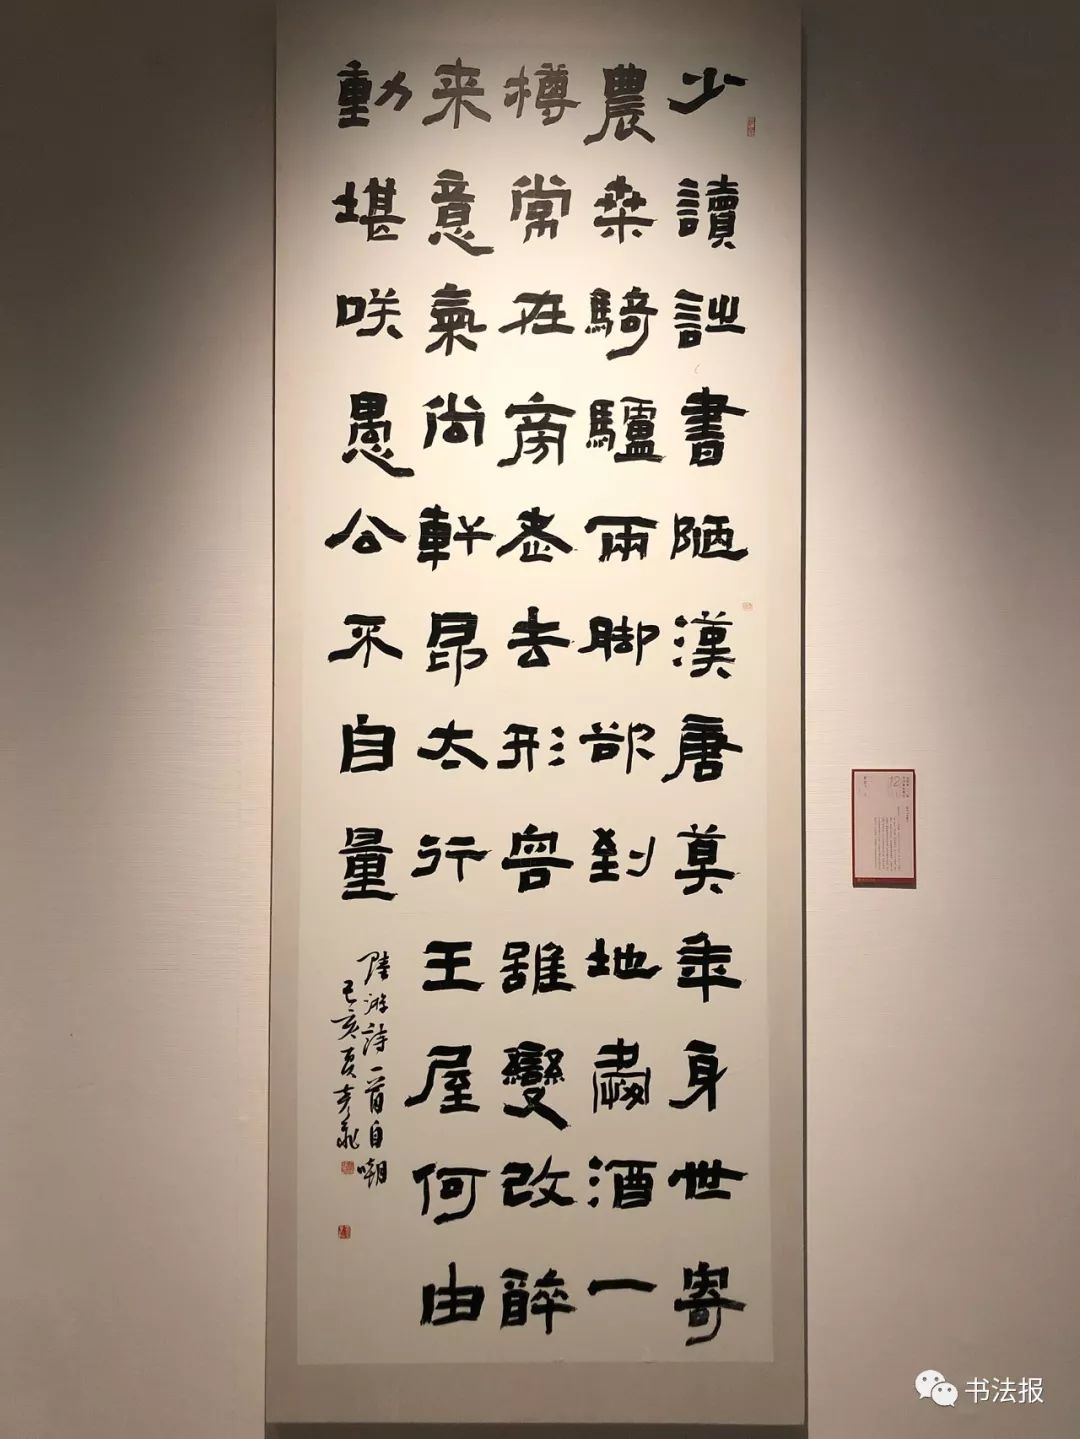 少讀詩書陋漢唐莫年身世寄
農桒騎驢兩脚欲到地酒一
樽常在旁老去形容雖變改醉
来意氣尚軒昂太行王屋何由
動堪咲愚公不自量
陸游詩一首自嘲
己亥夏
书法报